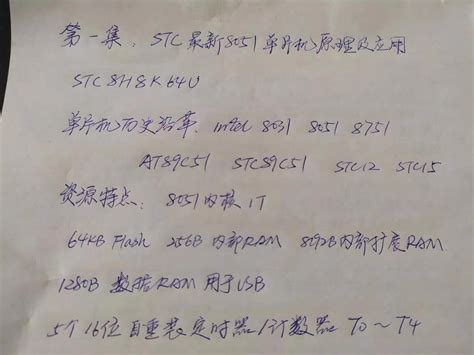 第一集、STC最新8051单片机原理及应用
STC8H8K64U
单片机历史沿革、intel 8031 8051 8751
AT89C51 STC89C51 STC12 STC15
资源特点: 8051内核 1T
64KB Flash 256B内部RAM 8192B内部扩展RAM
1280B 数据RAM用于USB
5个16位自重装定时器/计数器 T0~T4